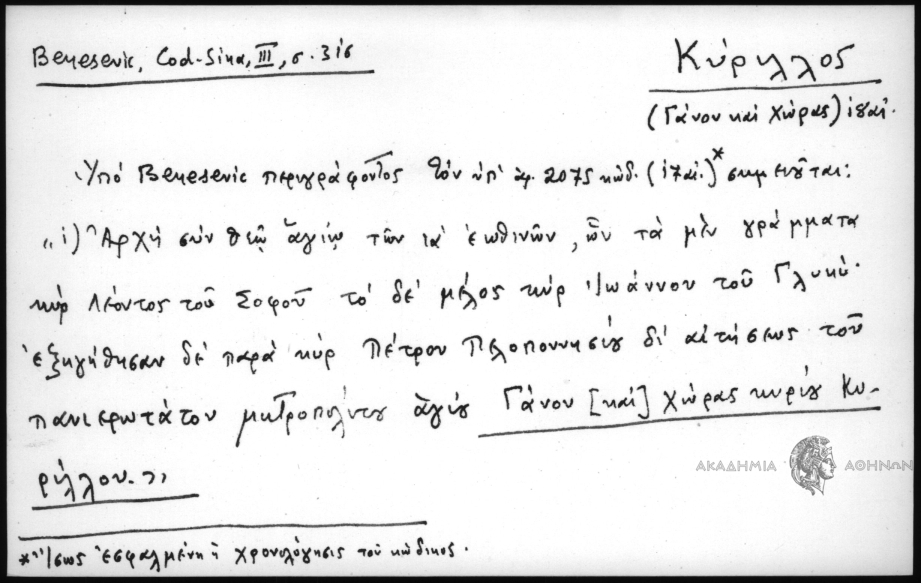 Benesevic, Cod-Sina, III, σ. 316
Κύριλλος
(Γάνου καὶ Χώρας) ιϛαί.
Ὑπό Benesevic περιγράφοντος τὸν ὑπ' ἀρ. 2075 κώδ. (ιζαί.)* σημειοῦται:
„1) Ἀρχή σύν θεῷ ἁγίῳ τῶν ια' ἑωθινῶν, ὧν τὰ μὲν γράμματα
κύρ Λέοντος τοῦ Σοφοῦ τό δέ μέλος κύρ Ἰωάννου τοῦ Γλυκύ·
ἐξηγήθησαν δέ παρά κύρ Πέτρου Πελοποννησίου δι' αἰτήσεως τοῦ
πανιερωτάτου μητροπολίτου ἁγίου Γάνου [καί] Χώρας κυρίου Κυ-
ρίλλου.„
ΑΚΑΔΗΜΙΑ ΑΘΗΝΩΝ
*Ἴσως ἐσφαλμένη ἡ χρονολόγησις τοῦ κώδικος.